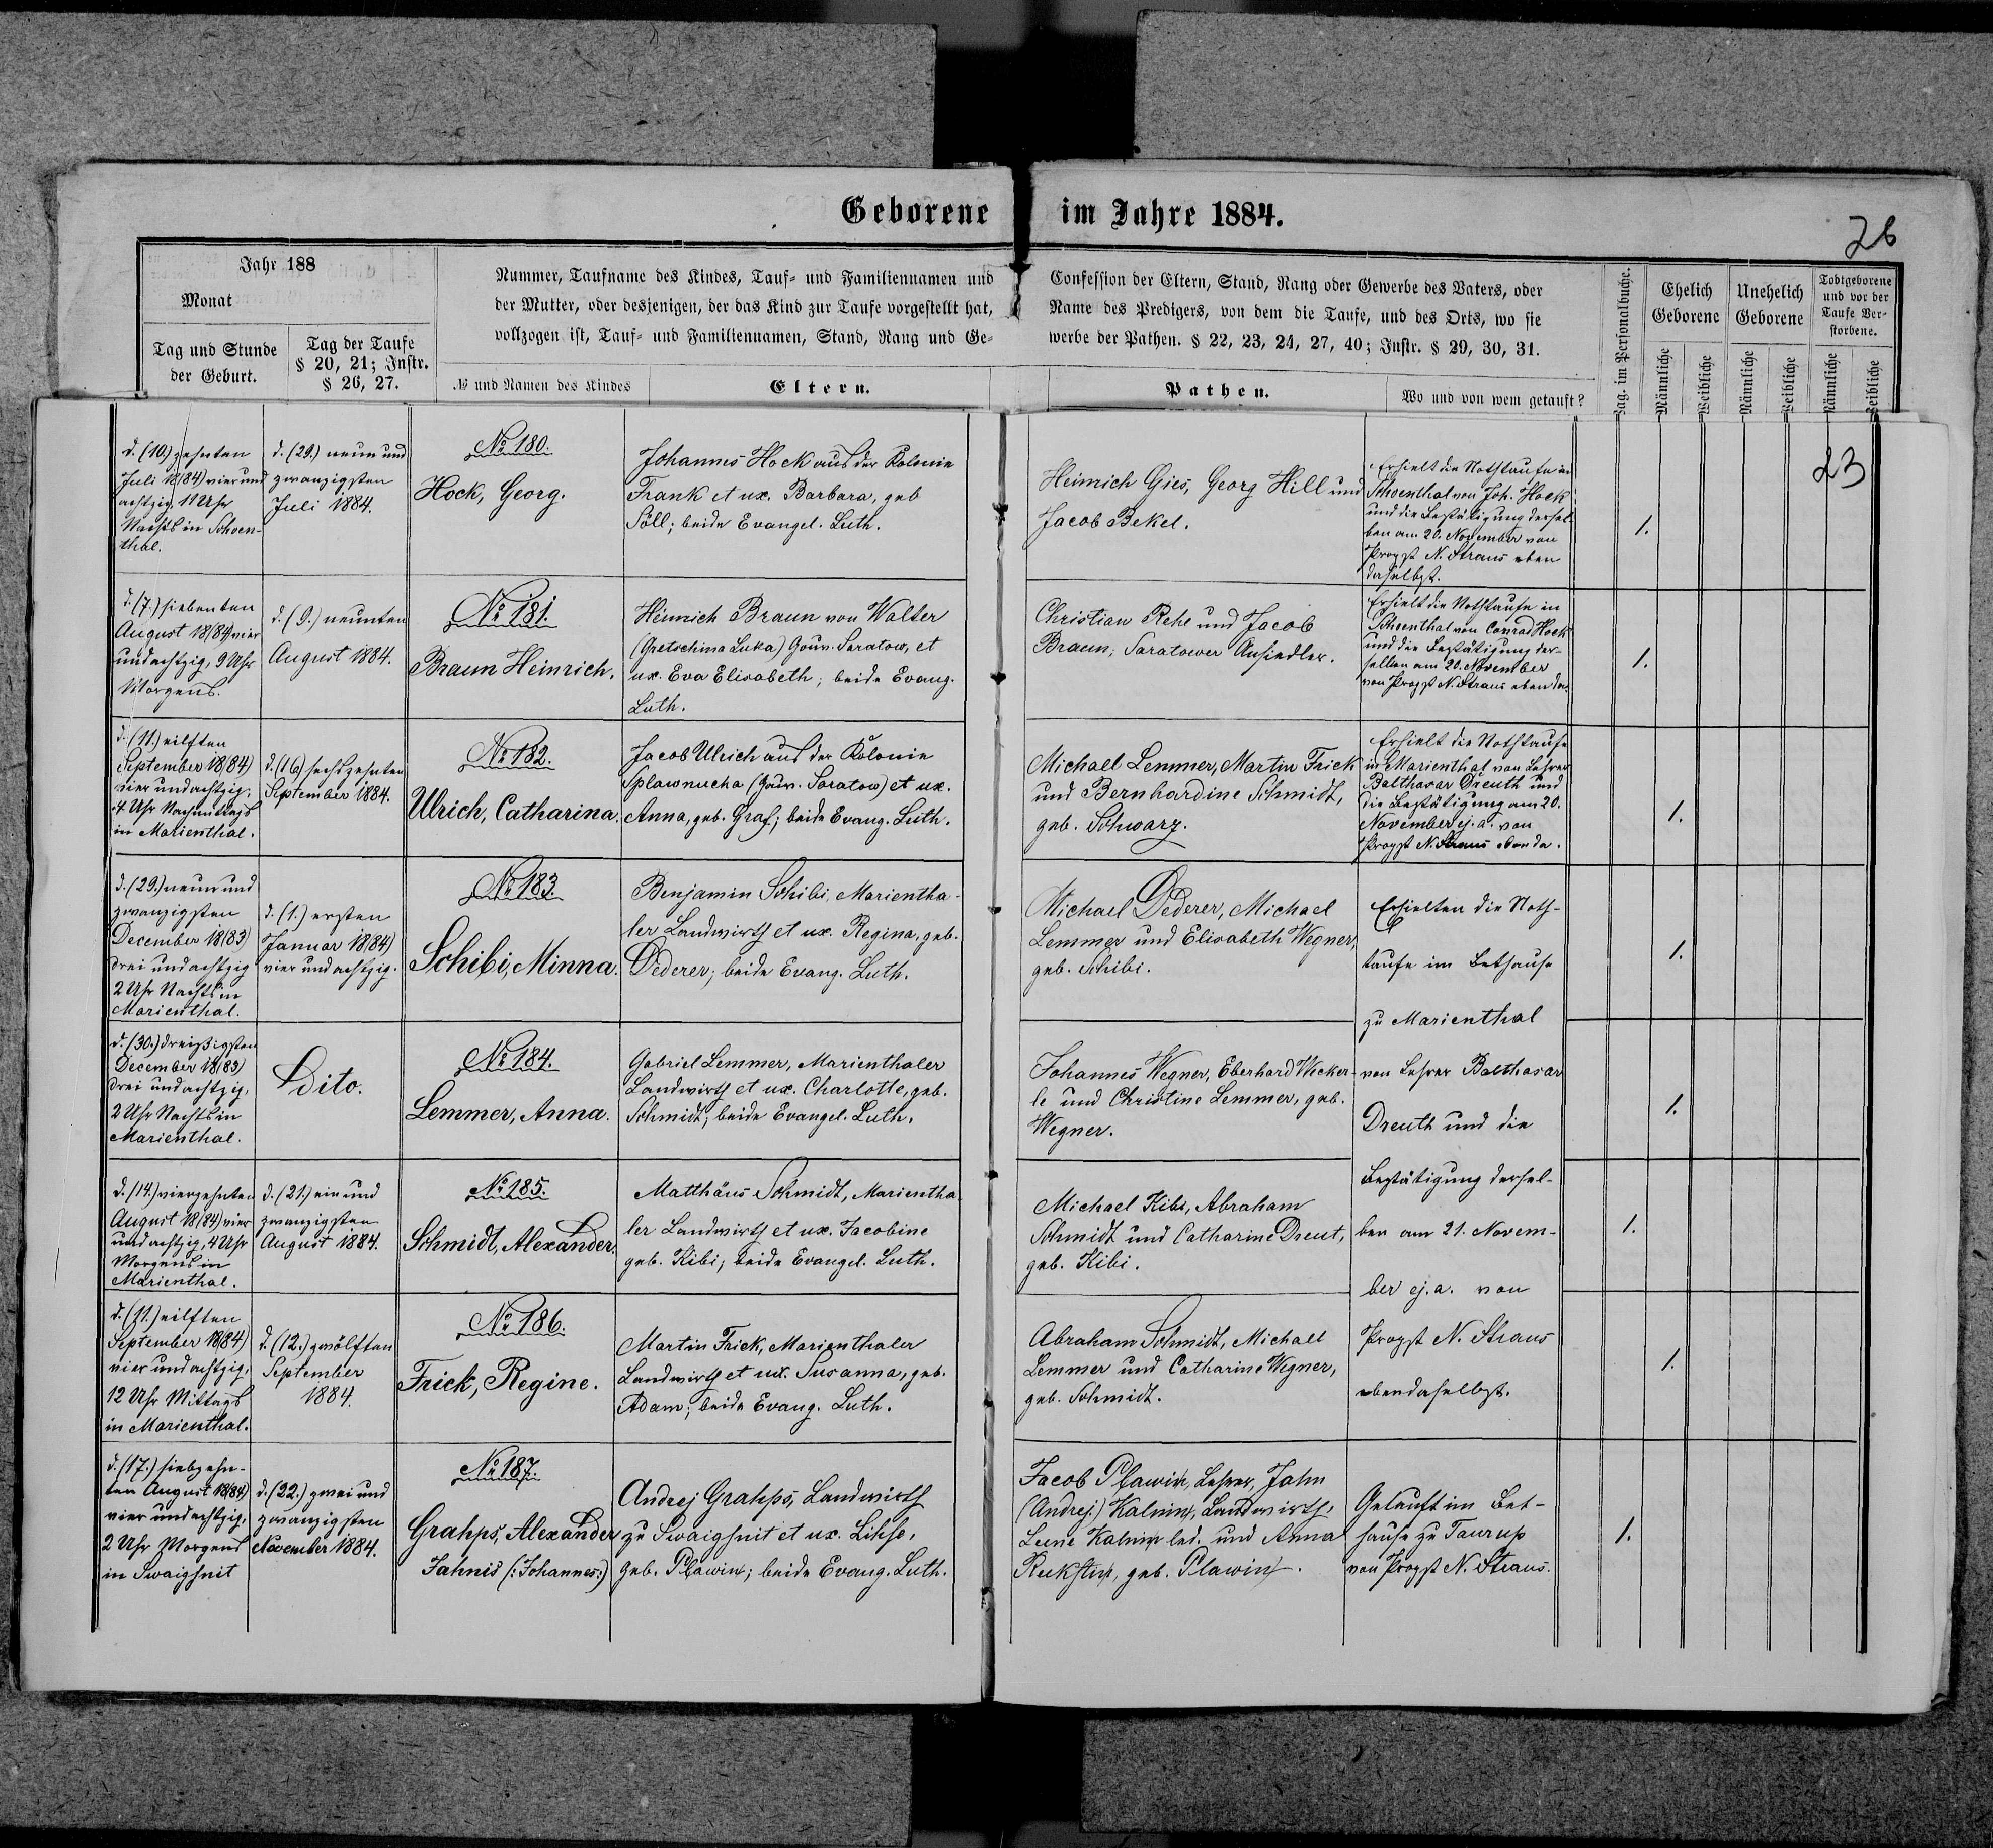 Geborene im Jahre 1884.
26
Jahr 188
Monat
Tag und Stunde
der Geburt.
Tag der Taufe
§ 20, 21; Instr.
§ 26, 27.
Nummer, Taufname des Kindes, Tauf- und Familiennamen und
der Mutter, oder desjenigen, der das Kind zur Taufe vorgestellt hat,
vollzogen ist, Tauf- und Familiennamen, Stand, Rang und Ge-
№ und Namen des Kindes
Eltern.
Confession der Eltern, Stand, Rang oder Gewerbe des Vaters, oder
Name des Predigers, von dem die Taufe, und des Orts, wo sie
werbe der Pathen. § 22, 23, 24, 27, 40; Instr. § 29, 30, 31.
Pathen.
Wo und von wem getauft?
Pag. im Personalbuche.
Ehelich
Geborene
Unehelich
Geborene
Todtgeborene
und vor der
Taufe Ver-
storbene.
Männliche
Weibliche
Männliche
Weibliche
Männliche
Weibliche
23
d. (10.) zehnten
Juli 18(84) vier und
achtzig, 11 Uhr
Nachts in Schoen-
thal.
d. (29.) neun und
zwanzigsten
Juli 1884.
№ 180.
Hock, Georg.
Johannes Hock aus der Kolonie
Frank et ux. Barbara, geb
Söll; beide Evangel. Luth.
Heinrich Gies, Georg Hill und
Jacob Bekel.
Erhielt die Nothtaufe in
Schoenthal von Joh. Hock
und die Bestätigung dersel-
ben am 20. November von
Propst N. Straus eben
daselbst.
1.
d. (7.) siebenten
August 18(84) vier
und achtzig, 9 Uhr
Morgens.
d. (9.) neunten
August 1884.
№ 181.
Braun Heinrich.
Heinrich Braun von Walter
(Gretschina Luka) Gouv. Saratow, et
ux. Eva Elisabeth; beide Evang.
Luth.
Christian Rehe und Jacob
Braun, Saratower Ansiedler.
Erhielt die Nothtaufe in
Schoenthal von Conrad Hock
und die Bestätigung der-
selben am 20. November
von Propst N. Straus eben da.
1.
d. (11.) eilften
September 18(84)
vier und achtzig,
4 Uhr Nachmittags
in Marienthal.
d. (16) sechszehnten
September 1884.
№ 182.
Ulrich, Catharina.
Jacob Ulrich aus der Kolonie
Splawnucha (Gouv. Saratow) et ux.
Anna, geb. Graf; beide Evang. Luth.
Michael Lemmer, Martin Frick
und Bernhardine Schmidt,
geb. Schwarz.
Erhielt die Nothtaufe
in Marienthal von Lehrer
Balthasar Dreuth und
die Bestätigung am 20.
November ej. a. von
Propst N. Straus eben da.
1.
d. (29.) neun und
zwanzigsten
December 18(83)
drei und achtzig
2 Uhr Nachts in
Marienthal.
d. (1.) ersten
Januar 18(84)
vier und achtzig.
№ 183.
Schibi, Minna.
Benjamin Schibi, Marientha-
ler Landwirth et ux. Regina, geb.
Dederer; beide Evang. Luth.
Michael Dederer, Michael
Lemmer und Elisabeth Wegner,
geb. Schibi.
Erhielten die Noth-
taufe im Bethause
zu Marienthal
von Lehrer Balthasar
Dreuth und die
Bestätigung dersel-
ben am 21. Novem-
ber ej. a. von
Propst N. Straus
ebendaselbst.
1.
d. (30.) dreißigsten
December 18(83)
drei und achtzig,
2 Uhr Nachts in
Marienthal.
Dito.
№ 184.
Lemmer, Anna.
Gabriel Lemmer, Marienthaler
Landwirth et ux. Charlotte, geb.
Schmidt; beide Evangel. Luth.
Johannes Wegner, Eberhard Wecker-
le und Christine Lemmer, geb.
Wegner.
1.
d. (14.) vierzehnten
August 18(84) vier
und achtzig, 4 Uhr
Morgens in
Marienthal.
d. (21.) ein und
zwanzigsten
August 1884.
№ 185.
Schmidt, Alexander.
Matthäus Schmidt, Marientha-
ler Landwirth et ux. Jacobine
geb. Kibi; beide Evangel. Luth.
Michael Kibi, Abraham
Schmidt und Catharine Dreut,
geb. Kibi.
1.
d. (11.) eilften
September 18(84)
vier und achtzig,
12 Uhr Mittags
in Marienthal.
d. (12.) zwölften
September
1884.
№ 186.
Frick, Regine.
Martin Frick, Marienthaler
Landwirth et ux. Susanna, geb.
Adam; beide Evang. Luth.
Abraham Schmidt, Michael
Lemmer und Catharine Wegner,
geb. Schmidt.
1.
d. (17.) siebzehn-
ten August 18(84)
vier und achtzig,
2 Uhr Morgens
in Swaigsnit
d. (22.) zwei und
zwanzigsten
November 1884.
№ 187.
Grahps, Alexander
Jahnis (: Johannes:)
Andrej Grahps, Landwirth
zu Swaigsnit et ux. Lihse,
geb. Plawin; beide Evang. Luth.
Jacob Plawin, Lehrer, Jahn
(Andrej.) Kalnin, Landwirth,
Leene Kalnin led. und Anna
Rukstin, geb. Plawin.
Getauft im Bet-
hause zu Taurup
von Propst N. Straus.
1.